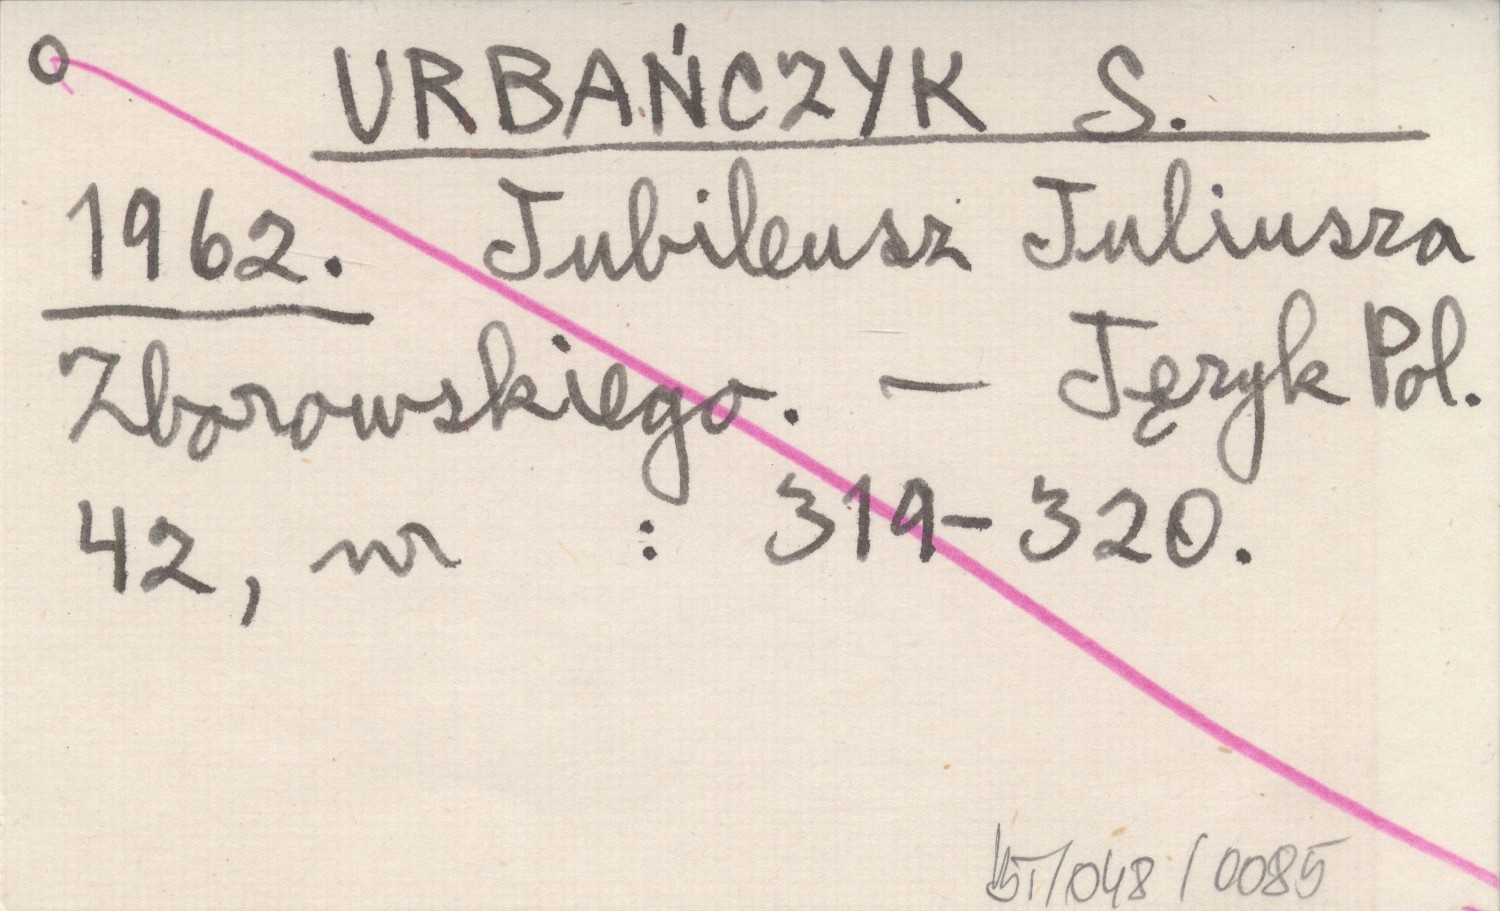 O URBAŃCZYK S.
1962. Jubileusz Juliusza
Zborowskiego. — Język Pol.
42, nr : 319-320.
/048/0085